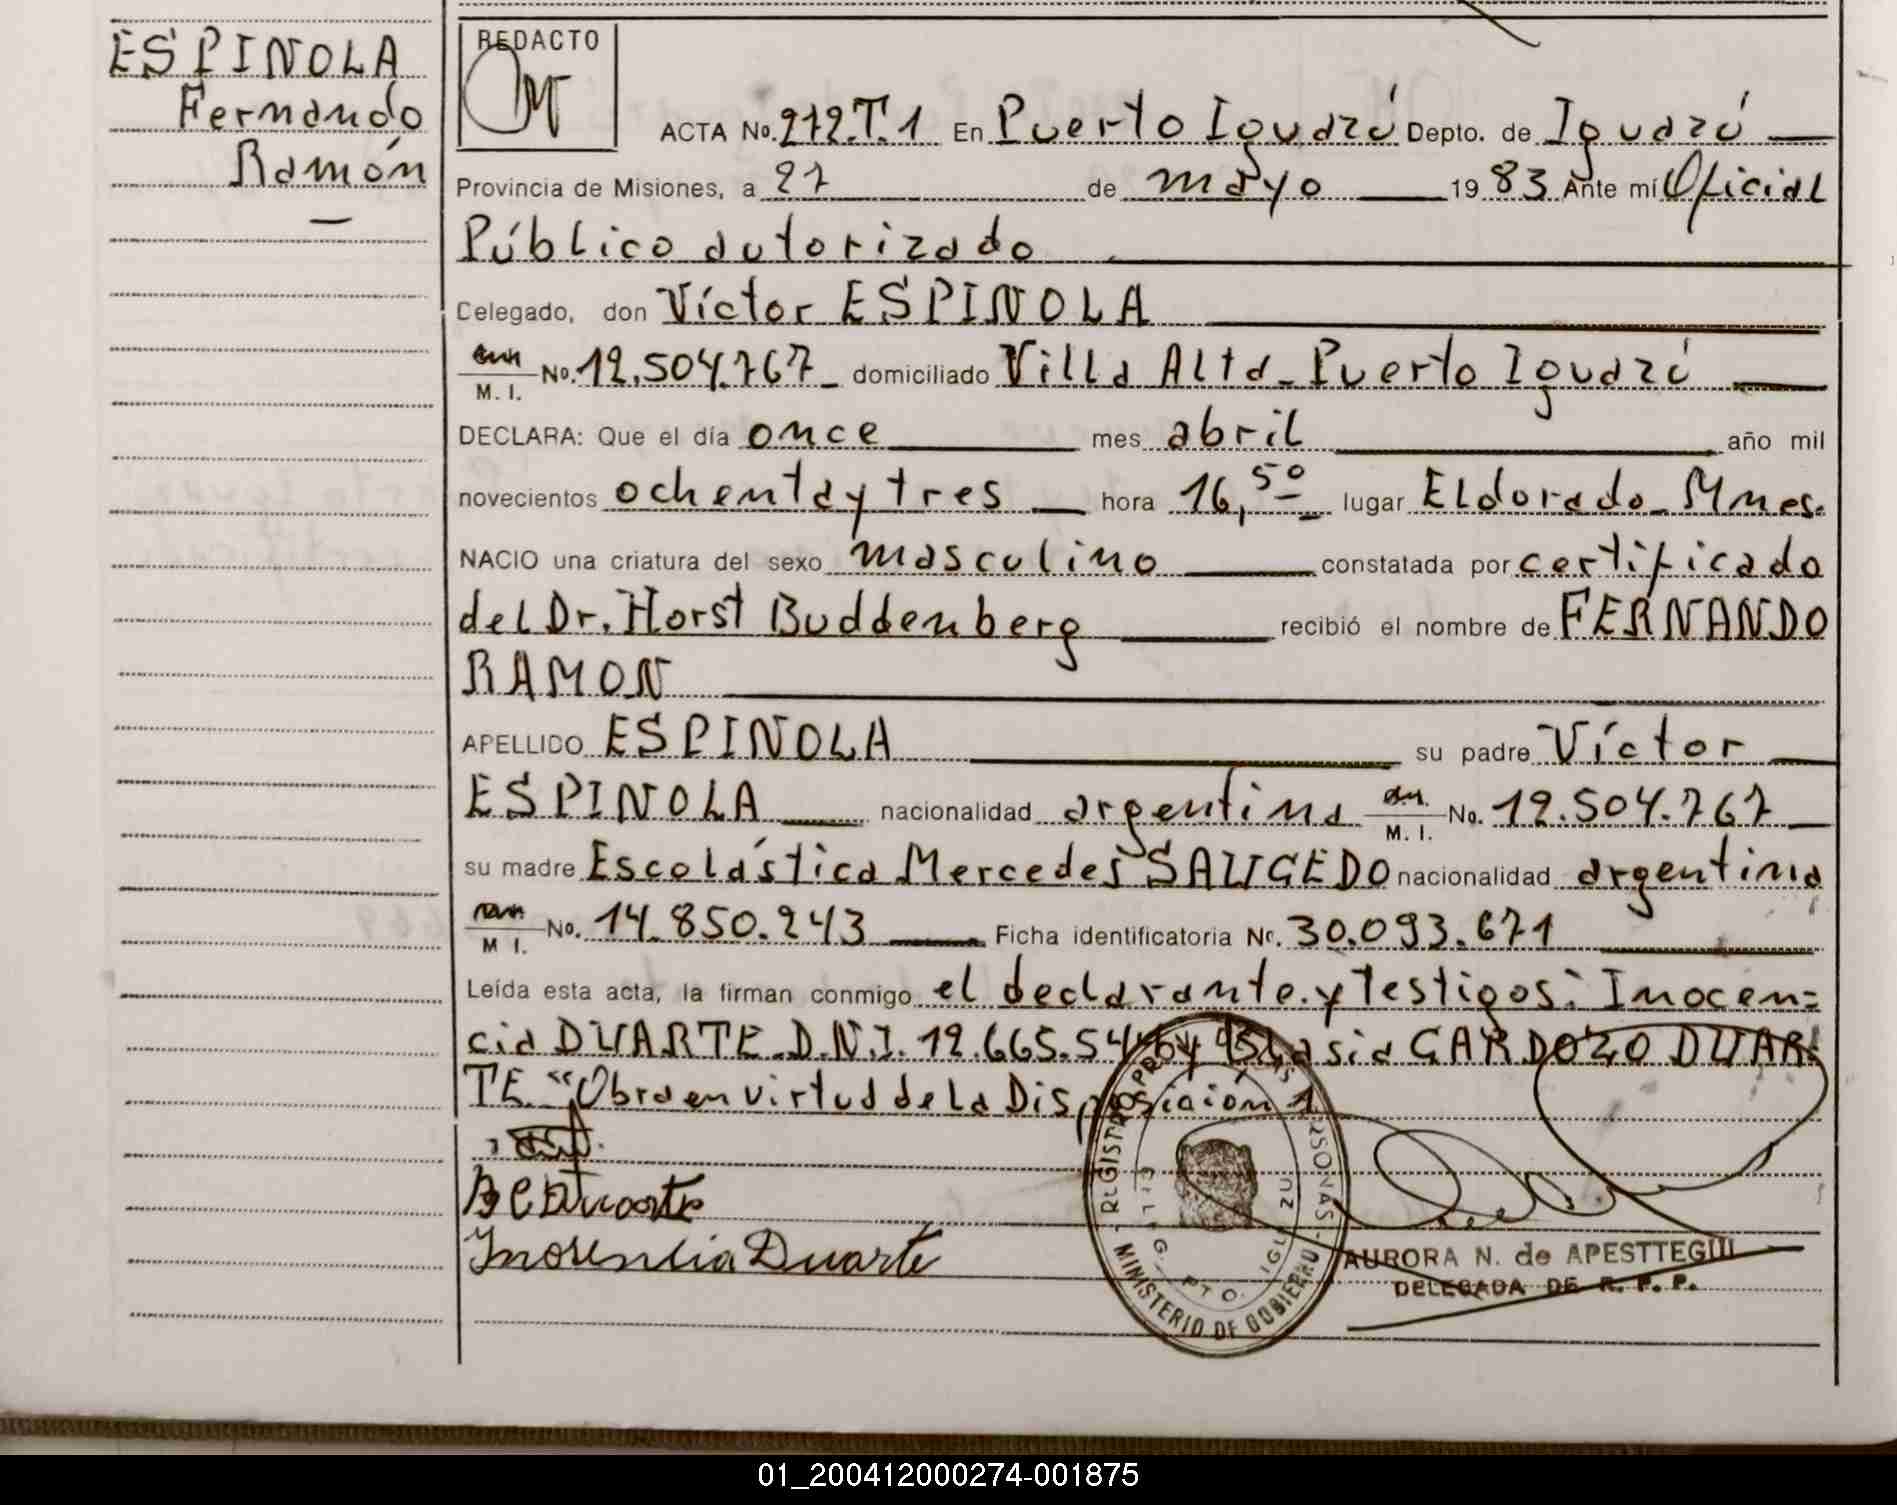 ESPINOLA
Fernando
Ramón
REDACTO
ACTA No. 212.T.1 En Puerto Iguazú Depto. de Iguazú
Provincia de Misiones, a 27 de mayo 1983 Ante mí Oficial
Público autorizado
Celegado, don Víctor ESPINOLA
M. I. No. 12.504.767 domiciliado Villa Alta - Puerto Iguazú
DECLARA: Que el día once mes abril año mil
novecientos ochenta y tres hora 16,50 lugar Eldorado - Mnes.
NACIO una criatura del sexo masculino constatada por certificado
del Dr. Horst Buddenberg recibió el nombre de FERNANDO
RAMON
APELLIDO ESPINOLA su padre Víctor
ESPINOLA nacionalidad argentina M. I. No. 12.504.767
su madre Escolástica Mercedes SALICEDO nacionalidad argentina
M I. No. 14.850.243 Ficha identificatoria Nr. 30.093.671
Leída esta acta, la firman conmigo el declarante y testigos: Inocen=
cia DUARTE D.N.I. 12.665.54 y Blasia CARDOZO DUAR=
TE "Obra en virtud de la Disposición 1
B C Duarte
Inosencia Duarte
REGISTRO PERSONAS - MINISTERIO DE GOBIERNO
PTO. IGUAZU
AURORA N. de APESTTEGUI
DELEGADA DE R. P. P.
01_200412000274-001875